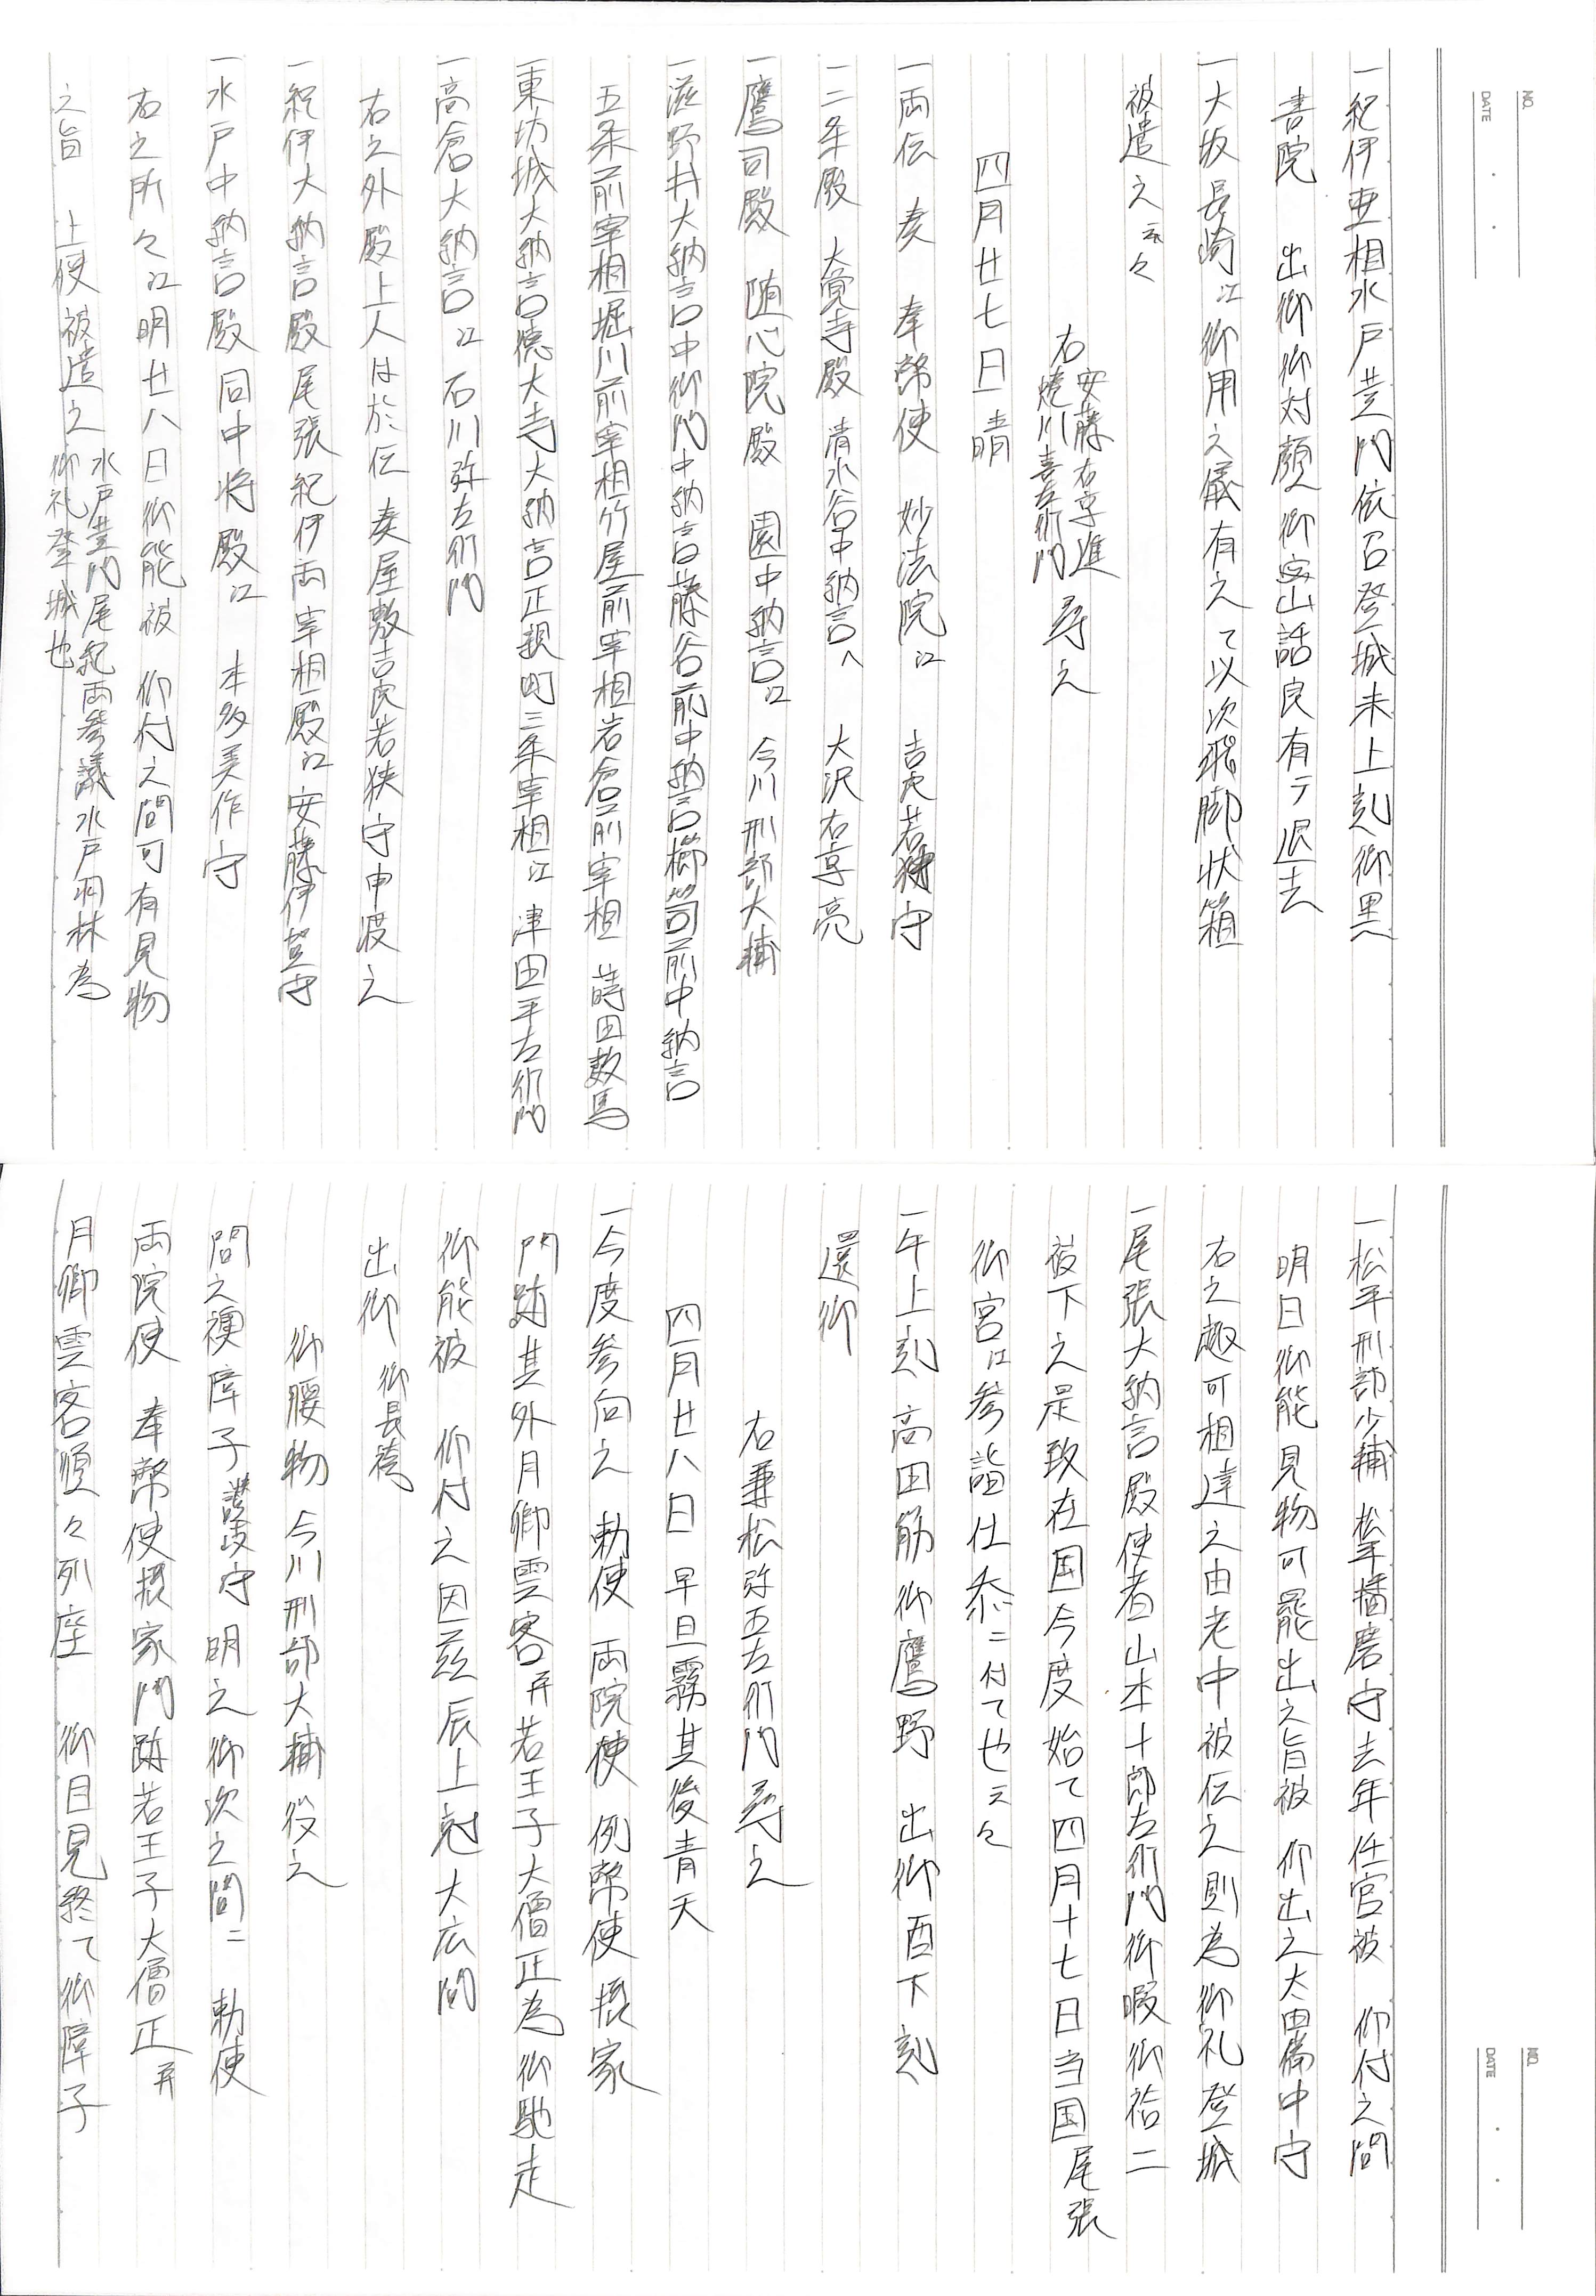 NO.
DATE
一紀伊亜相水戸黄門依召登城未上刻御黒
書院　出御御対顔御密山話良有テ退去
一大坂長崎江御用之儀有之て以次飛脚状箱
被遣之云々
右安藤右京進
焼川喜左衛門　尋之
四月廿七日晴
一両伝奏　奉幣使　妙法院江　吉良若狭守
一二条殿　大覚寺殿　清水谷中納言へ　大沢右京亮
一鷹司殿　随心院殿　園中納言江　今川刑部大輔
一滋野井大納言中御門中納言藤谷前中納言櫛笥前中納言
五条前宰相堀川前宰相竹屋前宰相岩倉前宰相　蒔田数馬
一東坊城大納言徳大寺大納言正親町三条宰相江　津田平左衛門
一高倉大納言江　石川弥左衛門
右之外殿上人は於伝奏屋敷吉良若狭守申渡之
一紀伊大納言殿尾張紀伊両宰相殿江安藤伊賀守
一水戸中納言殿同中将殿江　本多美作守
右之所々江明廿八日御能被　仰付之間可有見物
之旨　上使被遣之　水戸黄門尾紀両参議水戸羽林為
御礼登城也
NO.
DATE
一松平刑部少輔　松平播磨守去年任官被　仰付之間
明日御能見物可罷出之旨被　仰出之太田備中守
右之趣可相達之由老中被伝之則為御礼登城
一尾張大納言殿使者山本十郎左衛門御暇御袷二
被下之是致在国今度始て四月十七日当国尾張
御宮江参詣仕忝ニ付て也云々
一午上刻　高田筋御鷹野　出御　酉下刻
還御
右兼松弥五左衛門尋之
四月廿八日　早旦霧其後青天
一今度参向之　勅使　両院使　例幣使　摂家
門跡其外月卿雲客并若王子大僧正為御馳走
御能被　仰付之因茲辰上刻大広間
出御　御長袴
御腰物　今川刑部大輔役之
間之襖障子　讃岐守　明之御次之間ニ　勅使
両院使　奉幣使摂家門跡若王子大僧正并
月卿雲客順々列座　御目見終て御障子